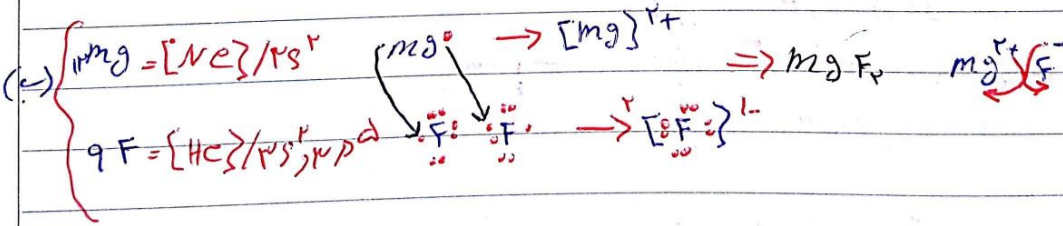 ب) ۱۲mg = [Ne]/۳s۲ mg → [mg]۲+ ⇒ mg F۲ mg۲+ F-
۹F = [He]/۲s۲,۲p۵ F F → ۲[F]۱-